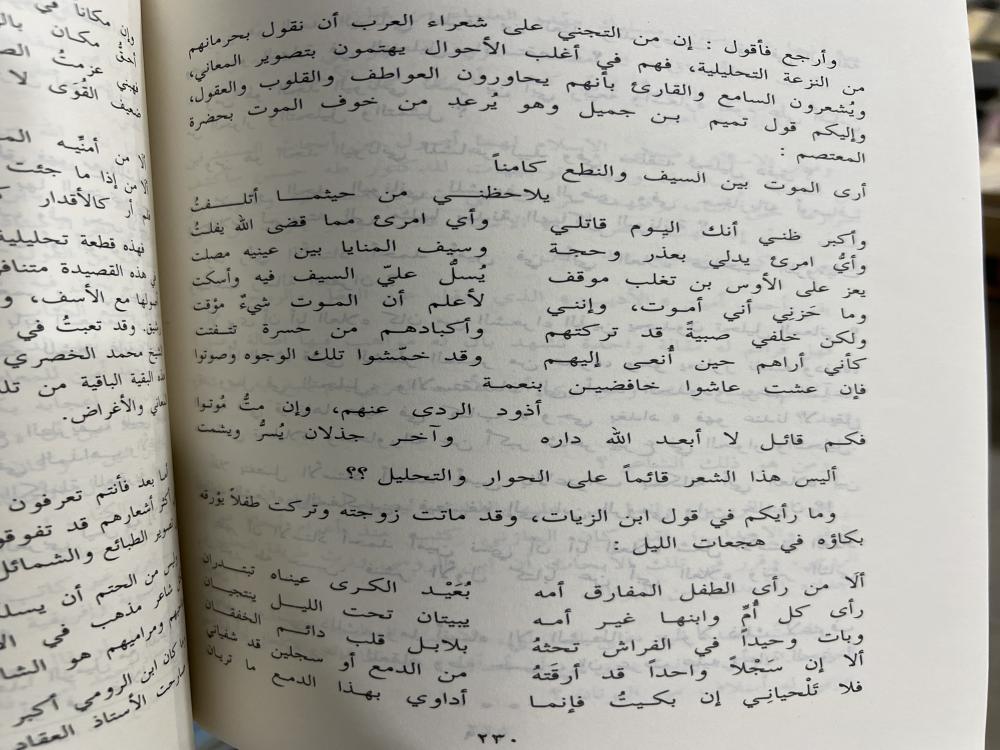 وأرجع فأقول : إن من التجني على شعراء العرب أن نقول بحرمانهم
من النزعة التحليلية، فهم في أغلب الأحوال يهتمون بتصوير المعاني،
ويُشعرون السامع والقارئ بأنهم يحاورون العواطف والقلوب والعقول،
وإليكم قول تميم بن جميل وهو يُرعد من خوف الموت بحضرة
المعتصم :
أرى الموت بين السيف والنطع كامناً
يلاحظني من حيثما أتلفتُ
وأكبر ظني أنك اليوم قاتلي وأي امرئ مما قضى الله يفلتُ
وأيُّ امرئ يدلي بعذر وحجة وسيف المنايا بين عينيه مصلت
يعز على الأوس بن تغلب موقف يُسلُّ عليّ السيف فيه وأسكت
وما حَزني أني أموت، وإنني لأعلم أن الموت شيءٌ مؤقت
ولكن خلفي صبيةً قد تركتهم وأكبادهم من حسرة تتفتت
كأني أراهم حين أُنعى إليهم وقد خمّشوا تلك الوجوه وصوتوا
فإن عشت عاشوا خافضين بنعمة
أذود الردى عنهم، وإن متُّ مُوتوا
فكم قائل لا أبعد الله داره وآخر جذلان يُسرُّ ويشمت
أليس هذا الشعر قائماً على الحوار والتحليل ؟؟
وما رأيكم في قول ابن الزيات، وقد ماتت زوجته وتركت طفلاً يؤرقه
بكاؤه في هجعات الليل :
ألَا من رأى الطفل المفارق أمه بُعَيْد الكرى عيناه تبتدران
رأى كل أُمٍّ وابنها غير أمه يبيتان تحت الليل ينتجيان
وبات وحيداً في الفراش تحثهُ بلابل قلب دائم الخفقان
ألا إن سَجْلاً واحداً قد أرقتَهُ من الدمع أو سجلين قد شفياني
فلا تَلْحياني إن بكيتُ فإنما أداوي بهذا الدمع ما تريان
٢٣٠
وإن مكاناً في
أحقُّ مكان
فهبي عزمتُ
ضعيف القُوَى لا
ألا من أمنيِّه
ألا من إذا ما جئت
فلم أر كالأقدار
فهذه قطعة تحليلية
في هذه القصيدة
مع الأسف،
وقد تعبتُ في
محمد الخصري
البقية الباقية من
والأغراض.
أما بعد فأنتم تعرفون
أكثر أشعارهم قد
تصوير الطبائع والشمائل
وليس من الحتم أن
شاعر مذهب في
ومراميهم هو
كان ابن الرومي أكبر
الأستاذ العقاد